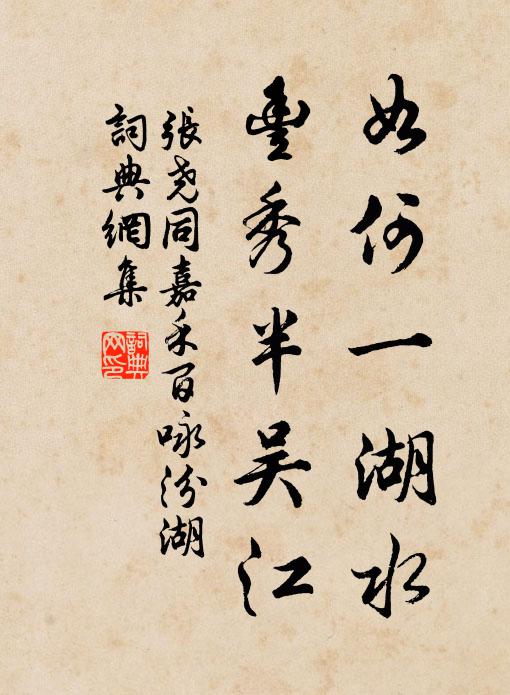 如何一湖水
豊秀半吴江
張尧同嘉禾百咏汾湖
詞典網集
詞典
网印